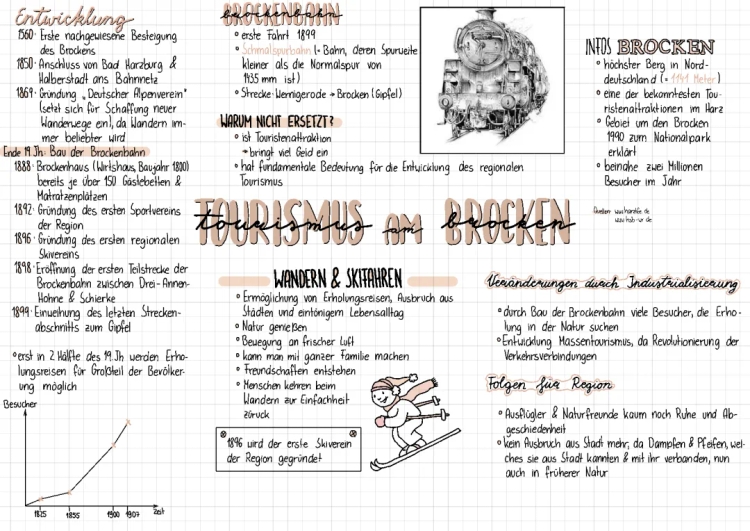 Entwicklung
1560· Erste nachgewiesene Besteigung
des Brockens
1850· Anschluss von Bad Harzburg &
Halberstadt ans Bahnnetz
1869· Gründung „Deutscher Alpenverein"
(setzt sich für Schaffung neuer
Wanderwege ein), da Wandern im-
mer beliebter wird
Ende 19. Jh: Bau der Brockenbahn
1888· Brockenhaus (Wirtshaus, Baujahr 1800)
bereits je über 150 Gästebetten &
Matratzenplätzen
1892· Gründung des ersten Sportvereins
der Region
1896· Gründung des ersten regionalen
Skivereins
1898· Eröffnung der ersten Teilstrecke der
Brockenbahn zwischen Drei-Annen-
Hohne & Schierke
1899· Einweihung des letzten Strecken-
abschnitts zum Gipfel
° erst in 2. Hälfte des 19. Jh werden Erho-
lungsreisen für Großteil der Bevölker-
ung möglich
Besucher
1825 1855 1900 1907 Zeit
BROCKENBAHN
brockenbahn
° erste Fahrt 1899
° Schmalspurbahn (= Bahn, deren Spurweite
kleiner als die Normalspur von
1435 mm ist)
° Strecke: Wernigerode → Brocken (Gipfel)
WARUM NICHT ERSETZT?
° ist Touristenattraktion
→ bringt viel Geld ein
° hat fundamentale Bedeutung für die Entwicklung des regionalen
Tourismus
INFOS BROCKEN
° höchster Berg in Nord-
deutschland (= 1141 Meter)
° eine der bekanntesten Tou-
ristenattraktionen im Harz
° Gebiet um den Brocken
1990 zum Nationalpark
erklärt
° beinahe zwei Millionen
Besucher im Jahr
Quellen:
TOURISMUS AM BROCKEN
tourismus am brocken
WANDERN & SKIFAHREN
° Ermöglichung von Erholungsreisen, Ausbruch aus
Städten und eintönigem Lebensalltag
° Natur genießen
° Bewegung an frischer Luft
° kann man mit ganzer Familie machen
° Freundschaften entstehen
° Menschen kehren beim
Wandern zur Einfachheit
zurück
1896 wird der erste Skiverein
der Region gegründet
Veränderungen durch Industrialisierung
° durch Bau der Brockenbahn viele Besucher, die Erho-
lung in der Natur suchen
° Entwicklung Massentourismus, da Revolutionierung der
Verkehrsverbindungen
Folgen für Region
° Ausflügler & Naturfreunde kaum noch Ruhe und Ab-
geschiedenheit
° kein Ausbruch aus Stadt mehr, da Dampfen & Pfeifen, wel-
ches sie aus Stadt kannten & mit ihr verbanden, nun
auch in früherer Natur